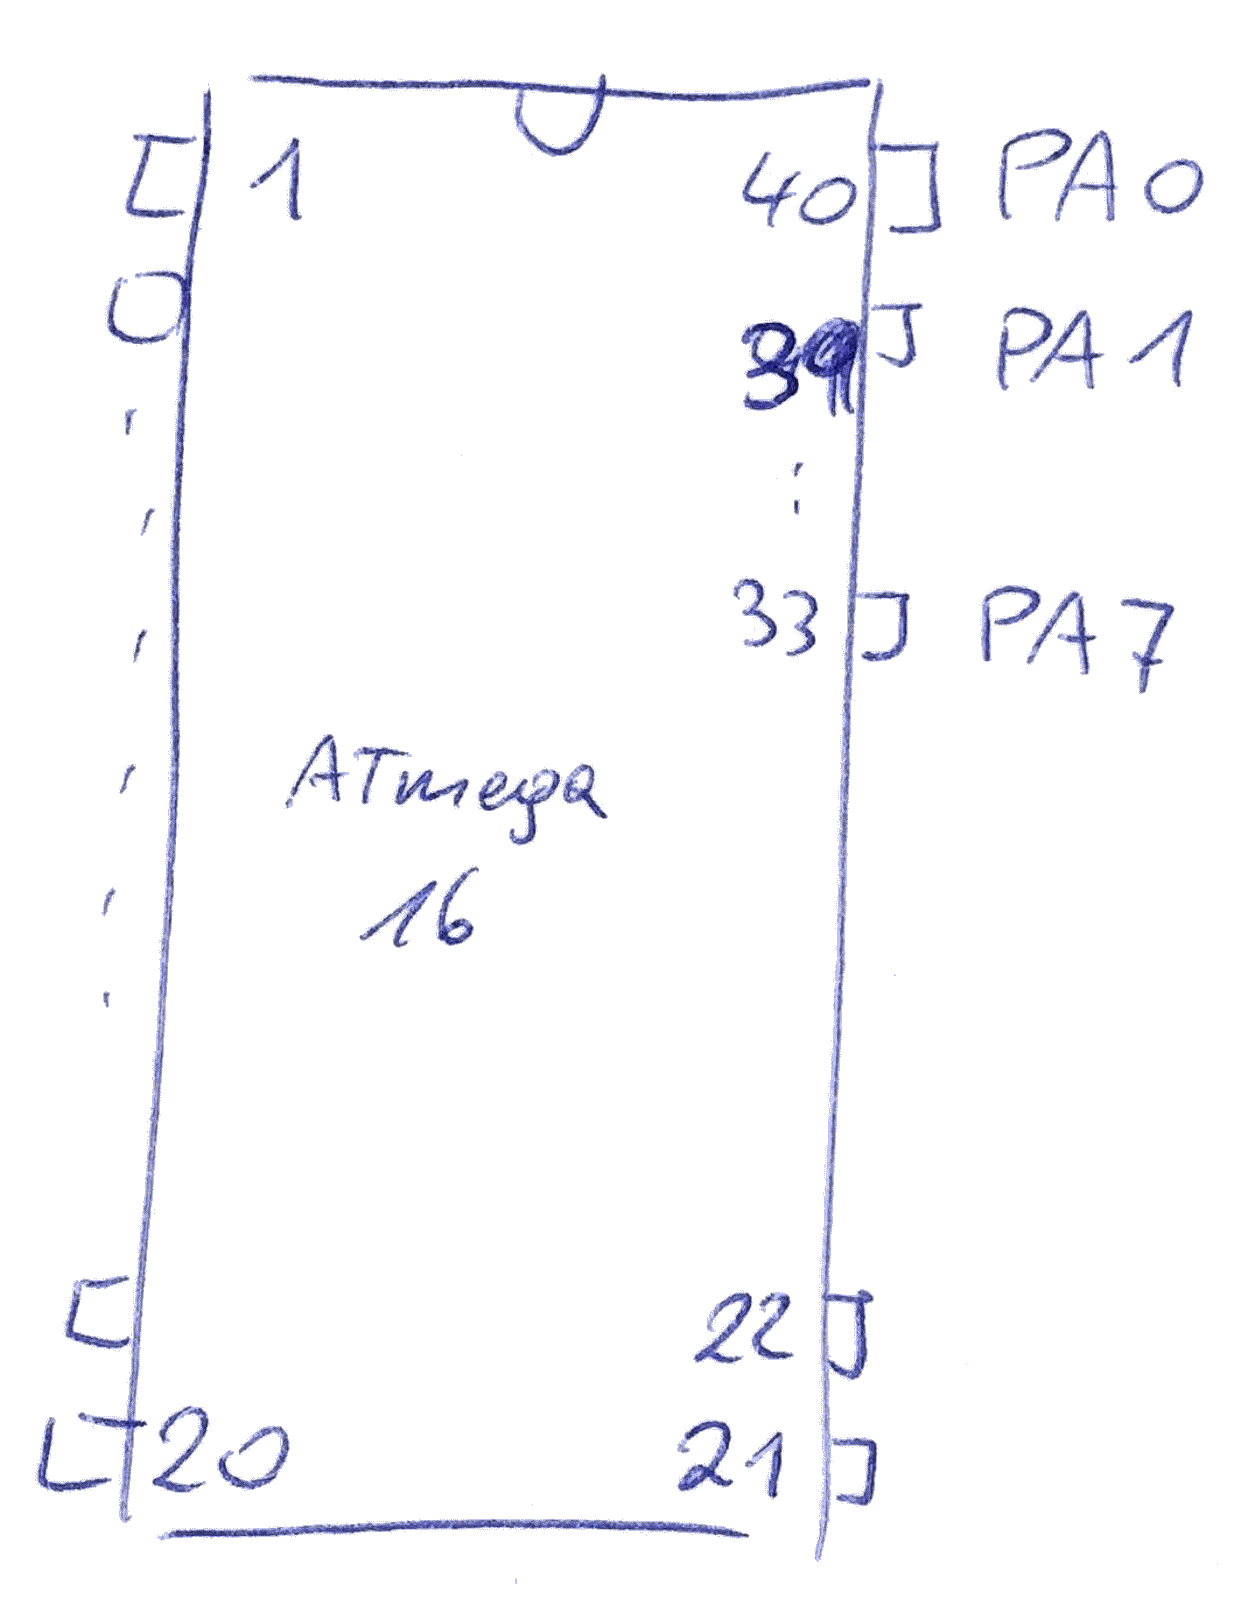 1 40 PA0
39 PA1
33 PA7
ATmega
16
22
20 21